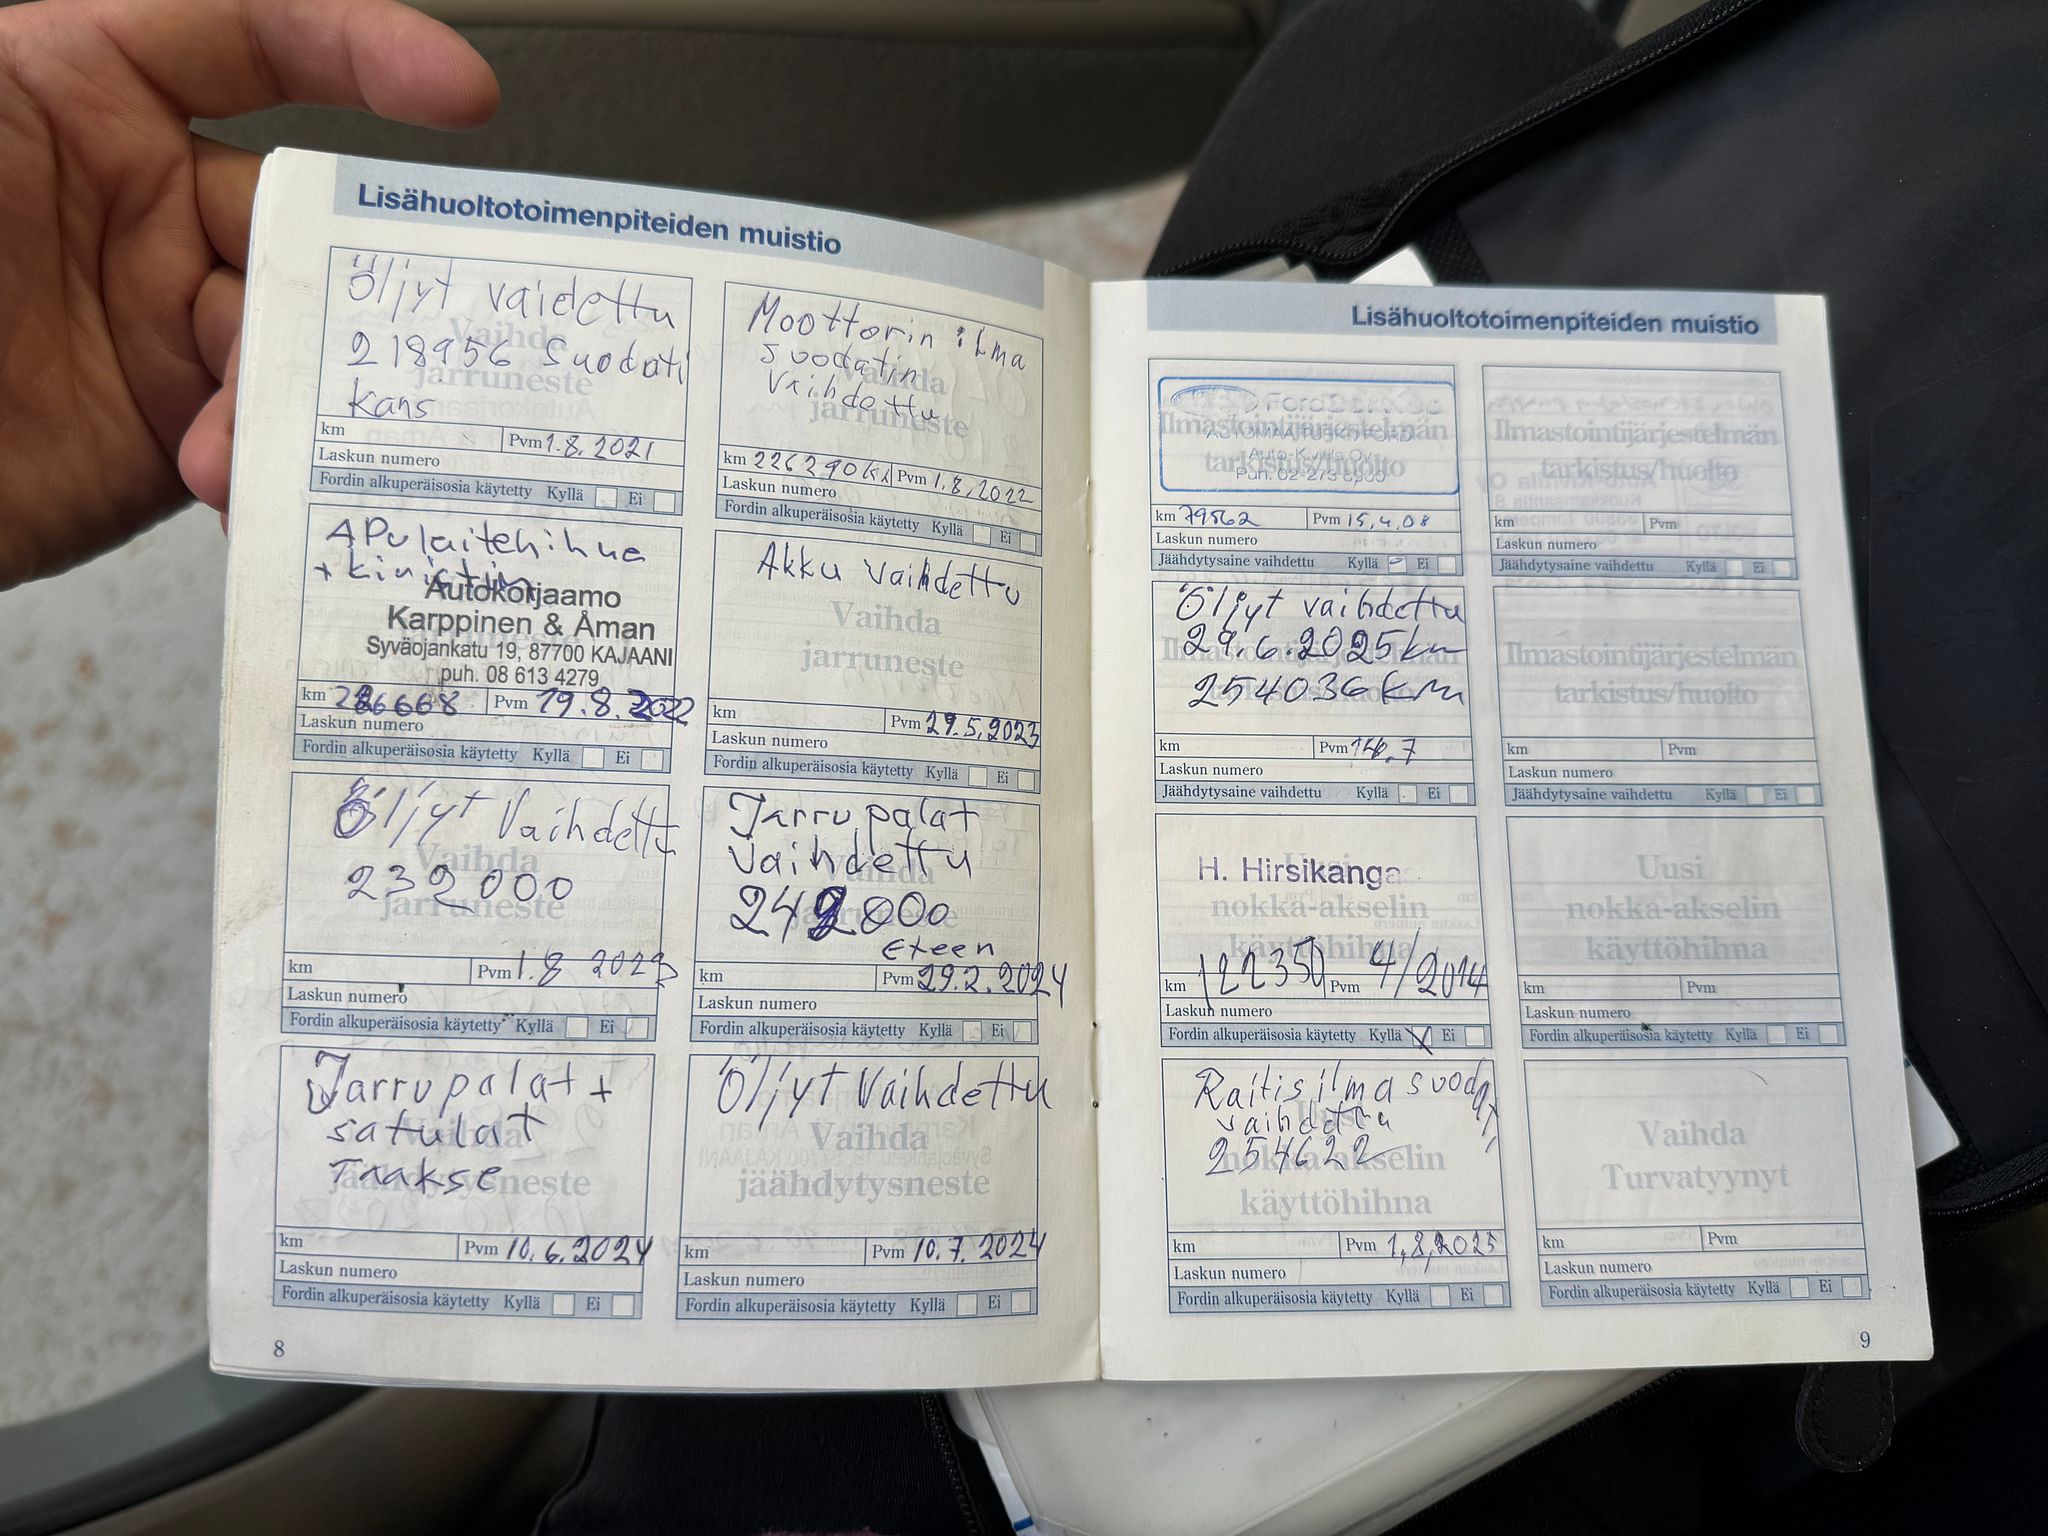 Lisähuoltotoimenpiteiden muistio
Öljyt vaidettu
218956 Suodati
kans
Vaihda
jarruneste
km
Pvm 1.8.2021
Laskun numero
Fordin alkuperäisosia käytetty Kyllä Ei
Moottorin ilma
suodatin
vaihdettu
Vaihda
jarruneste
km 226290 Pvm 1.8.2022
Laskun numero
Fordin alkuperäisosia käytetty Kyllä Ei
APulaitehihna
+ kiristin
Autokorjaamo
Karppinen & Åman
Syväojankatu 19, 87700 KAJAANI
puh. 08 613 4279
km 226668 Pvm 19.8.2022
Laskun numero
Fordin alkuperäisosia käytetty Kyllä Ei
Akku vaihdettu
Vaihda
jarruneste
km Pvm 29.5.2023
Laskun numero
Fordin alkuperäisosia käytetty Kyllä Ei
Öljyt Vaihdettu
232000
Vaihda
jarruneste
km Pvm 1.8 2023
Laskun numero
Fordin alkuperäisosia käytetty Kyllä Ei
Jarrupalat
vaihdettu
242000
Eteen
Vaihda
jarruneste
km Pvm 29.2.2024
Laskun numero
Fordin alkuperäisosia käytetty Kyllä Ei
Jarrupalat +
satulat
Taakse
Vaihda
jäähdytysneste
km Pvm 10.6.2024
Laskun numero
Fordin alkuperäisosia käytetty Kyllä Ei
Öljyt Vaihdettu
Vaihda
jäähdytysneste
km Pvm 10.7.2024
Laskun numero
Fordin alkuperäisosia käytetty Kyllä Ei
8
Lisähuoltotoimenpiteiden muistio
Ilmastointijärjestelmän
tarkistus/huolto
Puh. 02-273 8900
km 79562 Pvm 15.4.08
Laskun numero
Jäähdytysaine vaihdettu Kyllä Ei
Ilmastointijärjestelmän
tarkistus/huolto
km Pvm
Laskun numero
Jäähdytysaine vaihdettu Kyllä Ei
Öljyt vaihdettu
29.6.2025km
254036 km
Ilmastointijärjestelmän
tarkistus/huolto
km Pvm 14.7
Laskun numero
Jäähdytysaine vaihdettu Kyllä Ei
Ilmastointijärjestelmän
tarkistus/huolto
km Pvm
Laskun numero
Jäähdytysaine vaihdettu Kyllä Ei
H. Hirsikanga
Uusi
nokka-akselin
käyttöhihna
km 122350 Pvm 4/2014
Laskun numero
Fordin alkuperäisosia käytetty Kyllä X Ei
Uusi
nokka-akselin
käyttöhihna
km Pvm
Laskun numero
Fordin alkuperäisosia käytetty Kyllä Ei
Raitisilmasuodat.
vaihdettu
254622
Uusi
nokka-akselin
käyttöhihna
km Pvm 1.8.2025
Laskun numero
Fordin alkuperäisosia käytetty Kyllä Ei
Vaihda
Turvatyynyt
km Pvm
Laskun numero
Fordin alkuperäisosia käytetty Kyllä Ei
9